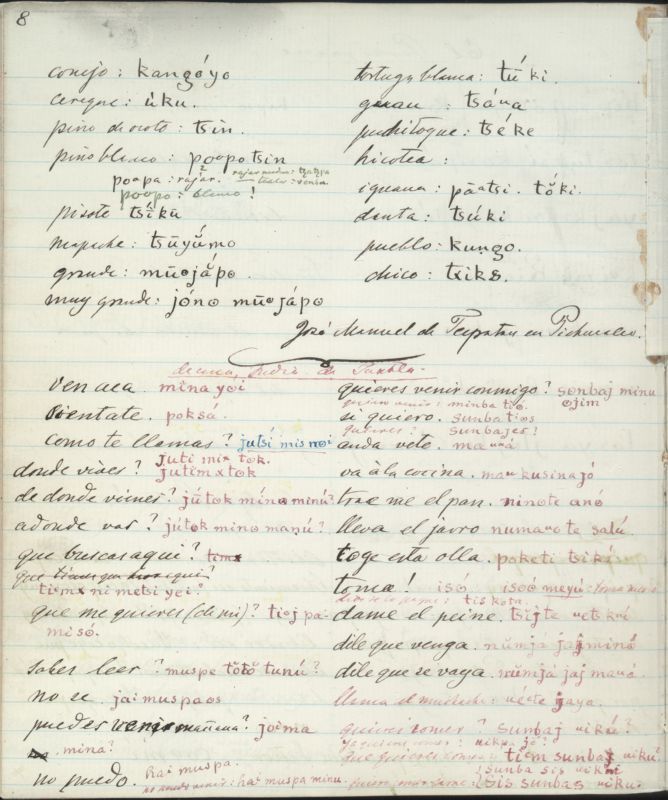 8
conejo: kangóyo
cereque: úku.
pino de ocote: tsin.
pino blanco: poopotsin
poopa: rajar.
poopo: blanco!
pisote tsíkū
mapache: tsūyúmo
grande: mūojápo.
muy grande: jóno mūojápo
tortuga blanca: tū́ki.
guau: tsáua
puchitoque: tséke
hicotea:
iguana: pāatsi. tŏki.
danta: tsúki
pueblo: kungo.
chico: txiks.
José Manuel de Tecpatan en Pichucalco.
de una, Pedro de Tuxtla.
ven aca. mina yoi
sientate. poksá.
como te llamas? jutsí mis noi
juti mix tok.
donde vives? jutimxtok
de donde vienes? jūtok mína minú?
adonde vas? jútok mino manú?
que buscas aqui? timx
tiimx ni metsi yoi?
que me quieres (de mi)? tioj pa-
miso.
sabes leer? muspe tŏtŏ tunú?
no se jaimuspaos
puedes venir mañana? joima
mina?
no puedo. hai muspa.
no puedo venir: hai muspa minu.
quieres venir conmigo? sonbaj minu
ojim
quiero venir: minba tio.
si quiero. sunba tios
quieres? sunbajes!
anda vete. mauxá
va à la cocina. mau kusinajó
trae me el pan. ninote anó
lleva el jarro numauote salú.
coge esta olla. poketi tsiká
toma! isó isoó meyú:
tiskota.
dame el peine. tsijte uetskúi
dile que venga. nŭmjá jaj minó
dile que se vaya. nŭmjá jaj mauó.
llama el muchacho: uécte jaya.
quieres comer? sunbaj uikú?
yo quiero comer: uikpa jó!
que quieres comer tiem sunbaj uiku?
sunba sis uikui
quiero comer carne: sis sunbas uiku.